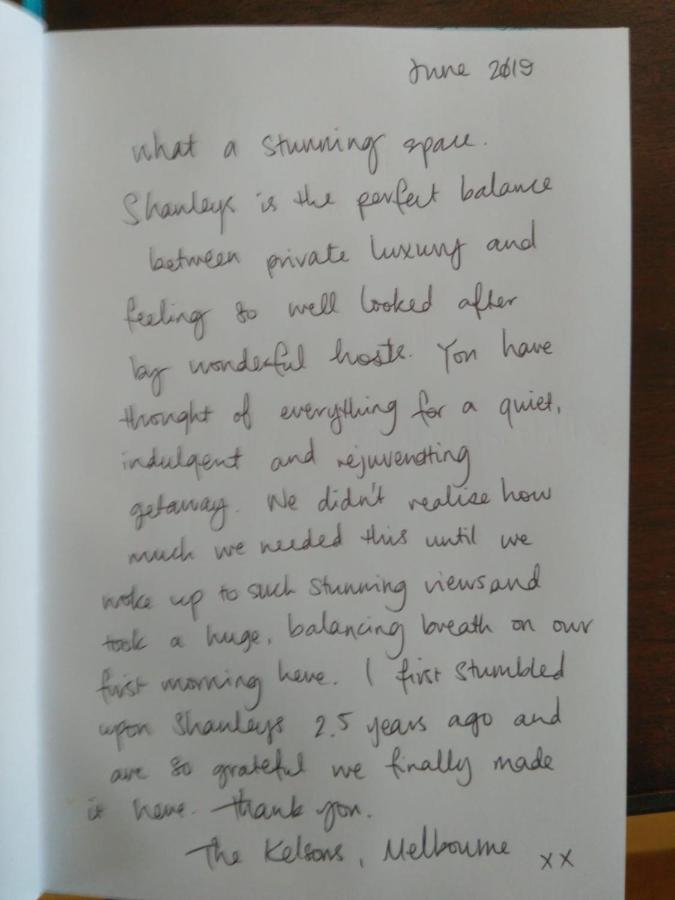 June 2019
what a stunning space.
Shanleys is the perfect balance
between private luxury and
feeling so well looked after
by wonderful hosts. You have
thought of everything for a quiet,
indulgent and rejuvenating
getaway. We didn't realise how
much we needed this until we
woke up to such stunning views and
took a huge, balancing breath on our
first morning here. I first stumbled
upon Shanleys 2.5 years ago and
are so grateful we finally made
it here. Thank you.
The Kelsons, Melbourne xx